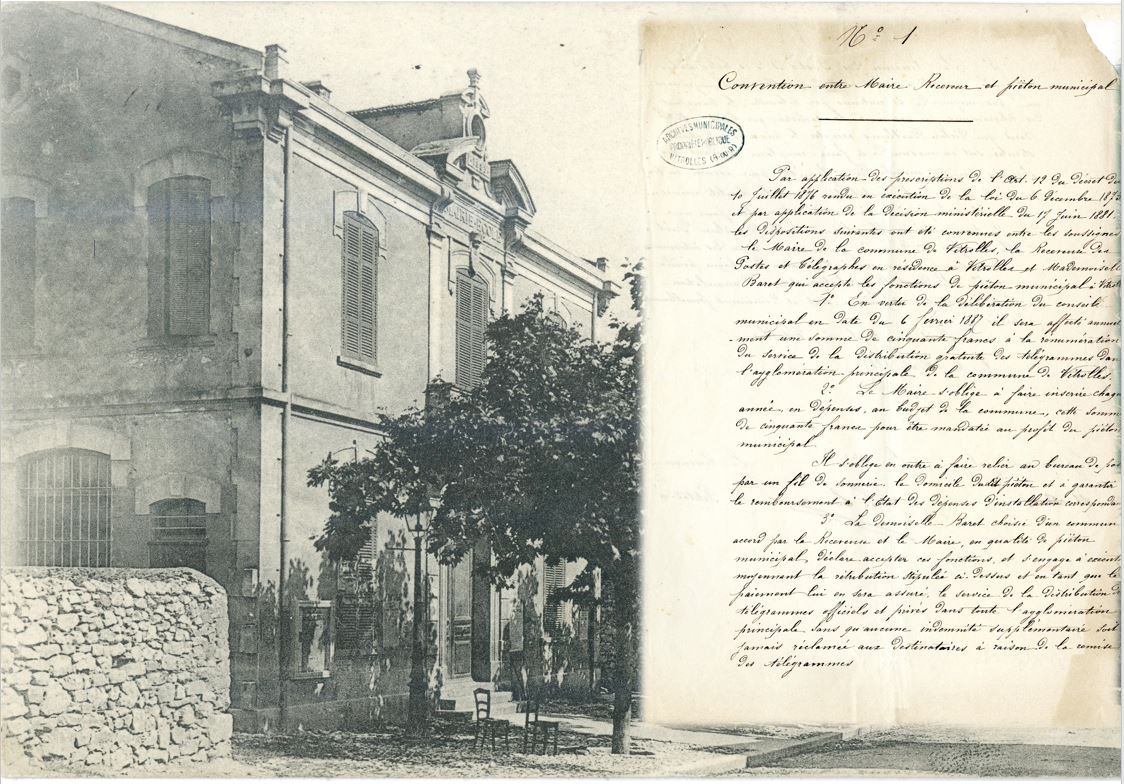 N° 1
Convention entre Maire Receveur et piéton municipal
ARCHIVES MUNICIPALES
PROPRIÉTÉ PUBLIQUE
VITROLLES (B-du-R)
Par application des prescriptions de l'Art. 12 du décret du
10 Juillet 1876 rendu en exécution de la loi du 6 décembre 1873
et par application de la décision ministérielle du 17 Juin 1881.
les dispositions suivantes ont été convenues entre les soussignés
le Maire de la commune de Vitrolles, la Receveuse des
Postes et Télégraphes en résidence à Vitrolles et Mademoisell
Baret qui accepte les fonctions de piéton municipal à Vitroll
1° En vertu de la délibération du conseil
municipal en date du 6 février 1887 il sera affecté annuel
-ment une somme de cinquante francs à la rénumération
du service de la distribution gratuite des télégrammes dans
l'agglomération principale de la commune de Vitrolles.
2° Le Maire s'oblige à faire inscrire chaqu
année, en dépenses, au budget de la commune, cette somme
de cinquante francs pour être mandatée au profit du piéton
municipal
Il s'oblige en outre à faire relier au bureau de pos
par un fil de sonnerie, le domicile dudit piéton et à garantir
le remboursement à l'Etat des dépenses d'installation corresponda
3° La demoiselle Baret choisie d'un commun
accord par la Receveuse et le Maire, en qualité de piéton
municipal, déclare accepter ces fonctions, et s'engage à exécut
moyennant la rétribution stipulée ci-dessus et en tant que le
paiement lui en sera assuré, le service de la distribution de
télégrammes officiels et privés dans toute l'agglomération
principale sans qu'aucune indemnité supplémentaire soit
jamais réclamée aux destinataires à raison de la remise
des télégrammes